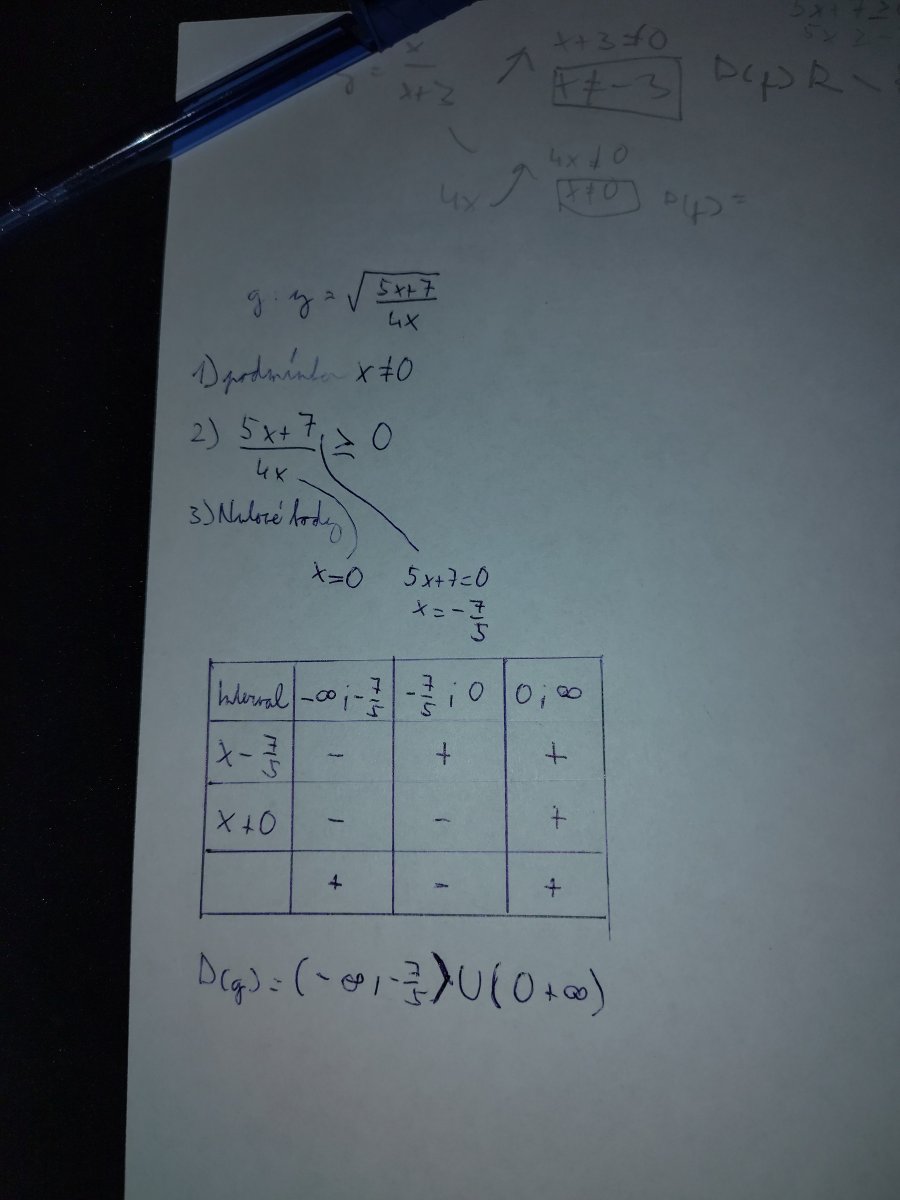 5x+7≥
5x ≥ -
y = x/(x+3) ↗ x+3≠0
x≠-3 D(f) R \
4x ↗ 4x≠0
x≠0 D(f) =
g: y = √((5x+7)/(4x))
1) podmínka x≠0
2) (5x+7)/(4x) ≥ 0
3) Nulové body
x=0 5x+7=0
x=-7/5
Interval -∞;-7/5 -7/5;0 0;∞
x-7/5 - + +
x+0 - - +
+ - +
D(g)=(-∞,-7/5⟩∪(0+∞)